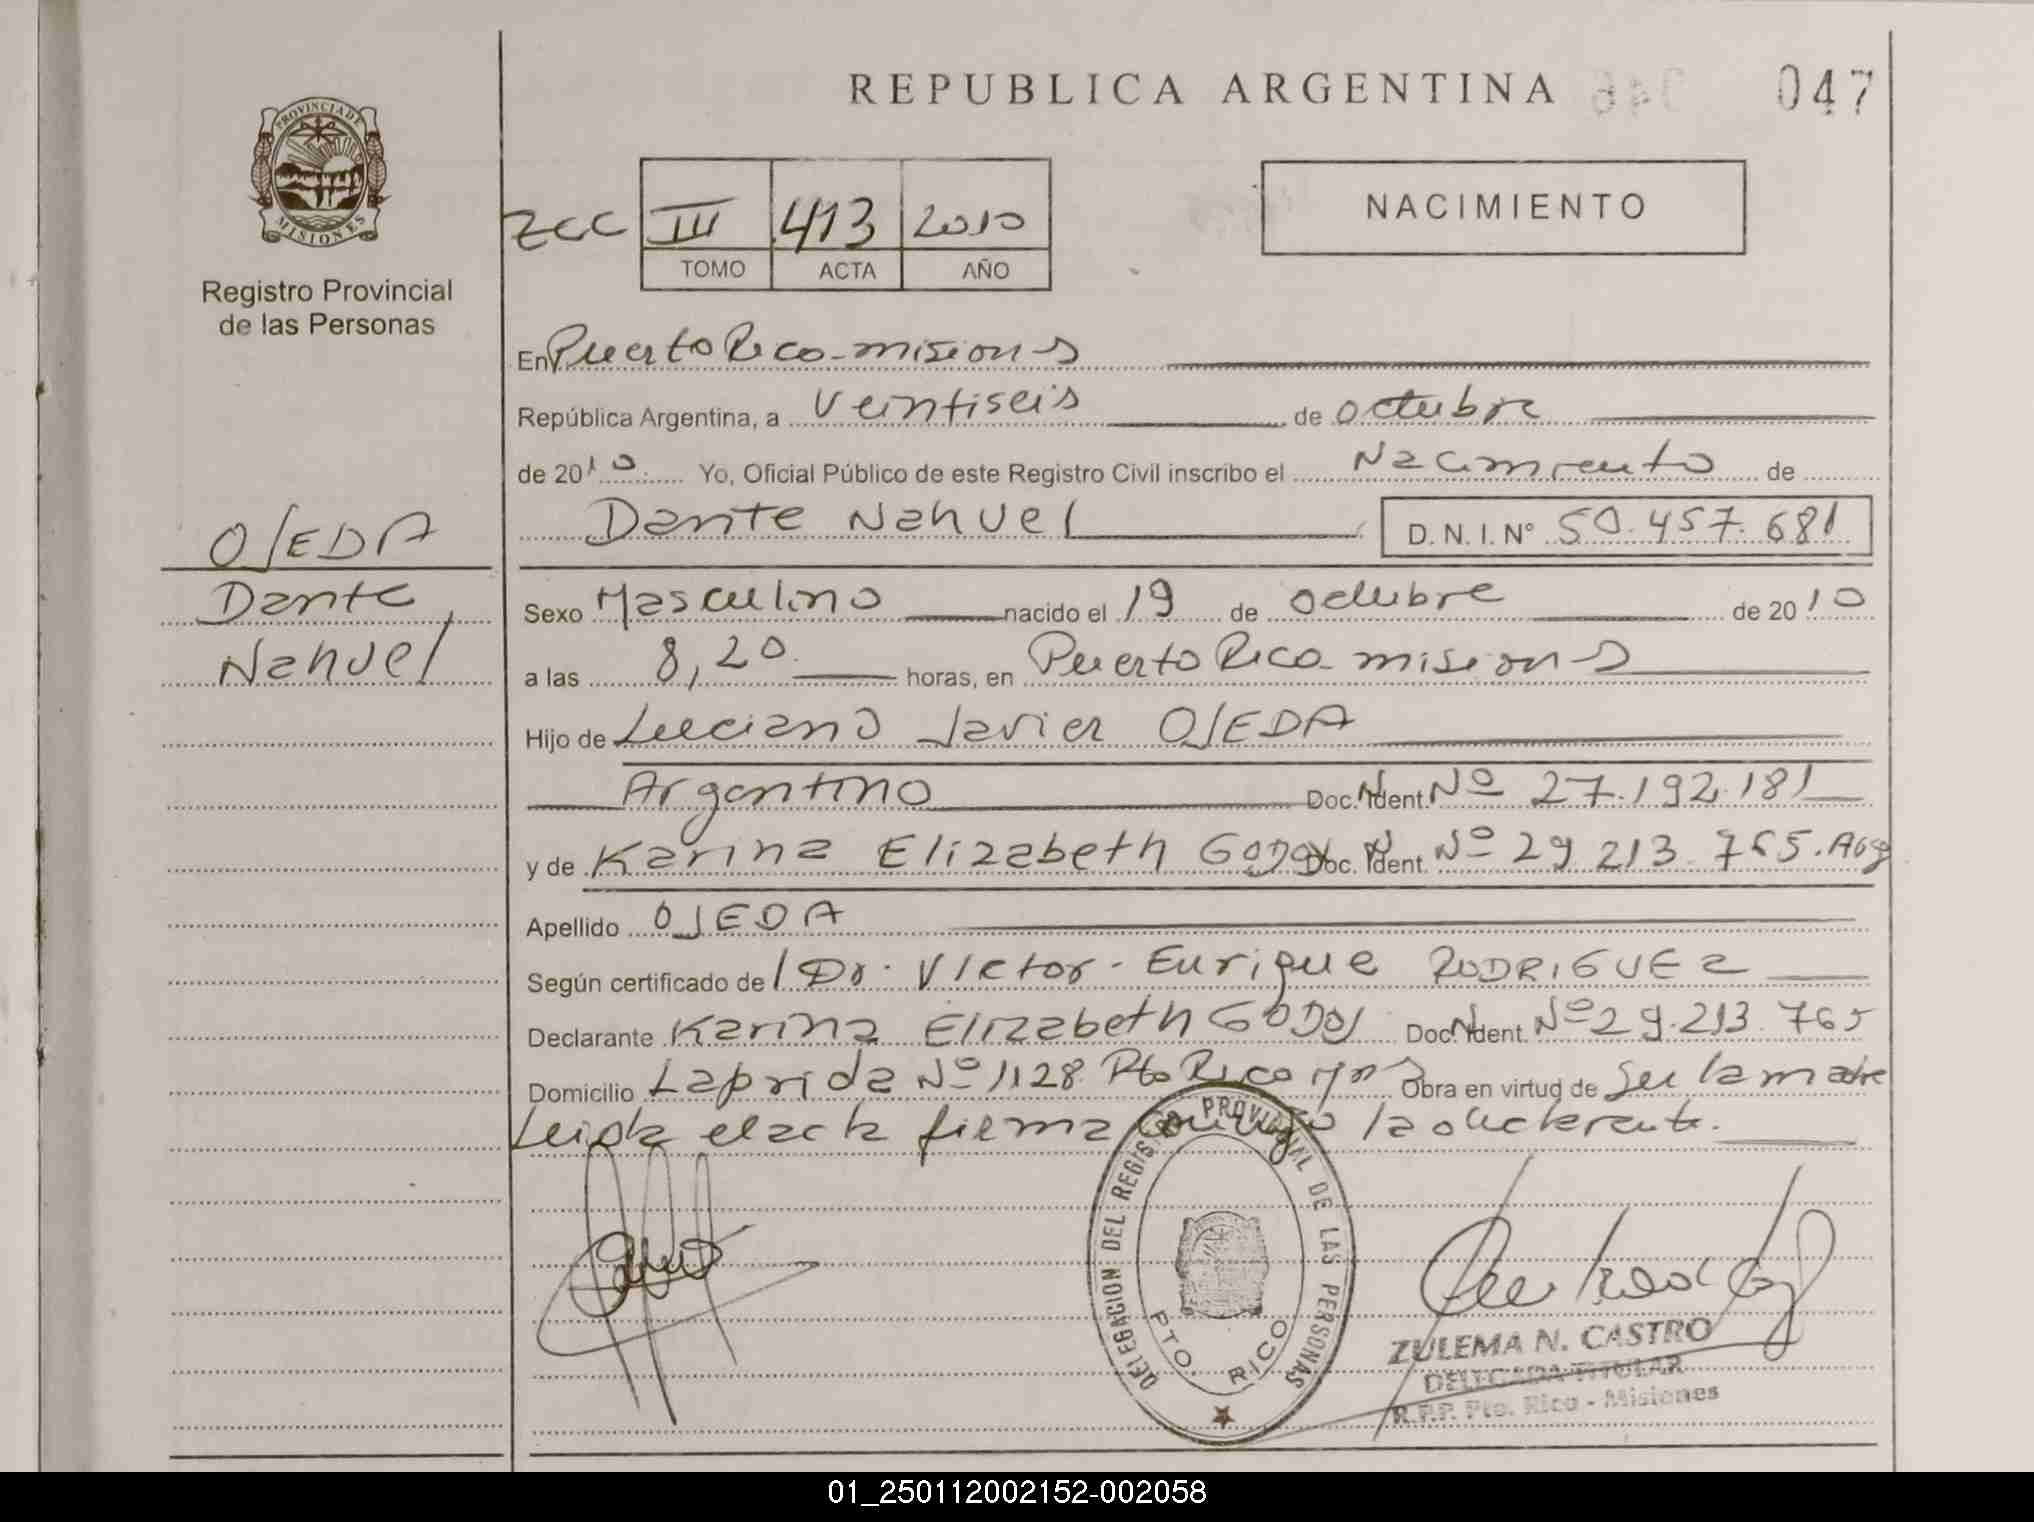 REPUBLICA ARGENTINA
047
PROVINCIA DE MISIONES
Registro Provincial
de las Personas
III 413 2010
TOMO ACTA AÑO
NACIMIENTO
En Puerto Rico - misiones
República Argentina, a veintiseis de octubre
de 2010 Yo, Oficial Público de este Registro Civil inscribo el Nacimiento de
Dante Nahuel D.N.I.Nº 50.457.681
OJEDA
Dante
Nahuel
Sexo Masculino nacido el 19 de octubre de 2010
a las 8,20 horas, en Puerto Rico - misiones
Hijo de Luciano Javier OJEDA
Argentino Doc. Ident. Nº 27.192.181
y de Karina Elizabeth GODOY Doc. Ident. Nº 29.213.765. Arg
Apellido OJEDA
Según certificado del Dr. Victor Enrique RODRIGUEZ
Declarante Karina Elizabeth GODOY Doc. Ident. Nº 29.213.765
Domicilio Laprida Nº 1128 Pto Rico Mnes Obra en virtud de ser la madre
Leida el acta firma conmigo la declarante.
DELEGACION DEL REGISTRO PROVINCIAL DE LAS PERSONAS
PTO. RICO
ZULEMA N. CASTRO
DELEGADA TITULAR
R.P.P. Pto. Rico - Misiones
01_250112002152-002058